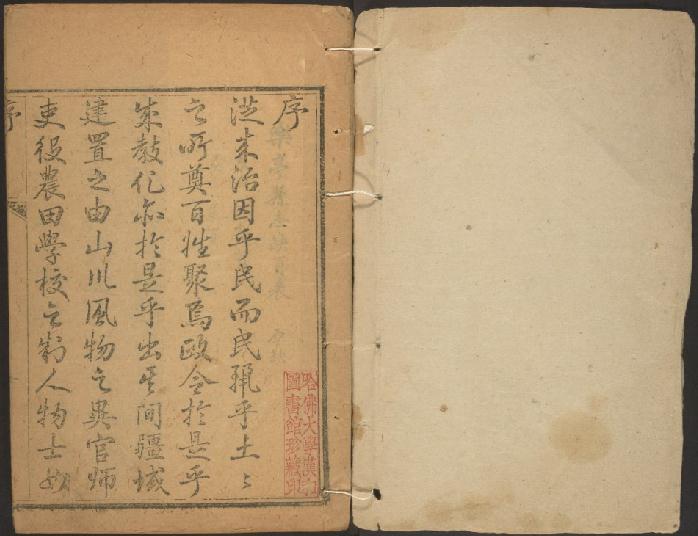 序
從来治因乎民而民麗乎土〻
之所奠百姓聚焉政令於是乎
成教化亦於是乎出其間疆域
建置之由山川風物之異官師
吏役農田學校之制人物士女
序
哈佛大學漢和
圖書館珍藏印